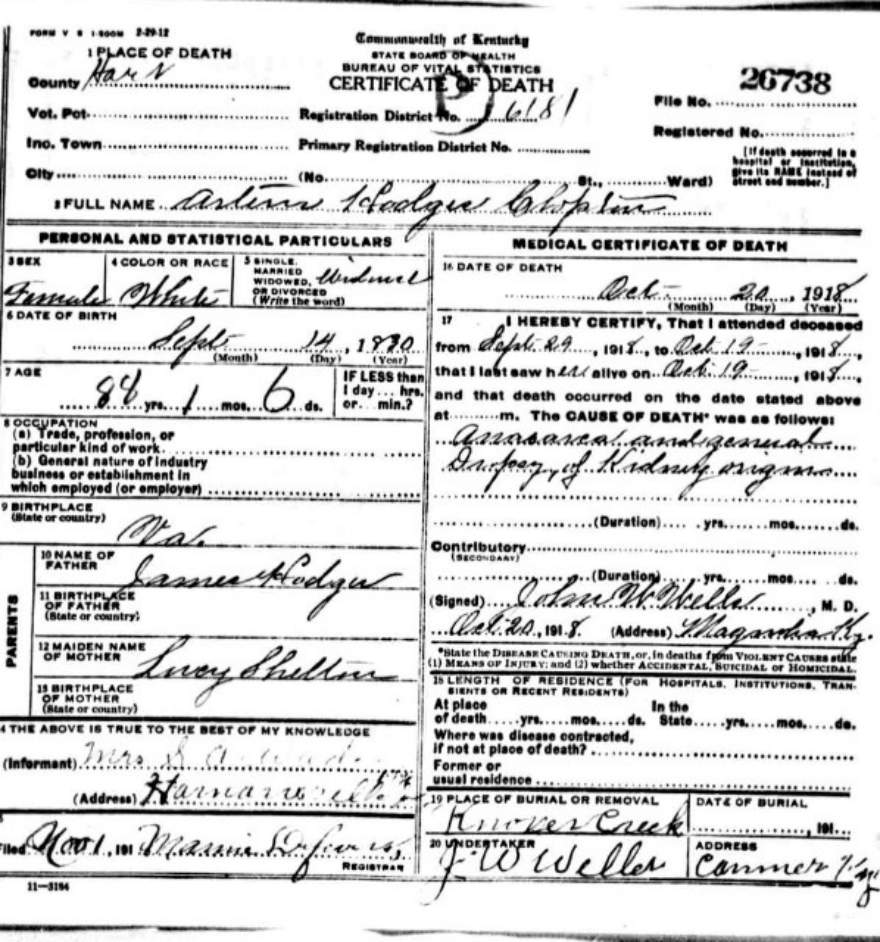 FORM V S 1-500M 2-29-12
Commonwealth of Kentucky
STATE BOARD OF HEALTH
BUREAU OF VITAL STATISTICS
CERTIFICATE OF DEATH
1 PLACE OF DEATH
County Hart
26738
File No.
Vot. Pct.
Registration District No. 6181
Registered No.
Inc. Town
Primary Registration District No.
[If death occurred in a hospital or institution, give its NAME instead of street and number.]
City (No. St., Ward)
2 FULL NAME Hodges Clopton
PERSONAL AND STATISTICAL PARTICULARS
3 SEX
Female
4 COLOR OR RACE
White
5 SINGLE, MARRIED WIDOWED, OR DIVORCED (Write the word)
6 DATE OF BIRTH
Sept 14, 18
(Month) (Day) (Year)
7 AGE
yrs. 1 mos. 6 ds.
IF LESS than 1 day... hrs. or... min.?
8 OCCUPATION
(a) Trade, profession, or
particular kind of work
(b) General nature of industry
business or establishment in
which employed (or employer)
9 BIRTHPLACE
(State or country)
Va.
PARENTS
10 NAME OF FATHER
James Hodges
11 BIRTHPLACE OF FATHER
(State or country)
12 MAIDEN NAME OF MOTHER
Lucy Shelton
13 BIRTHPLACE OF MOTHER
(State or country)
4 THE ABOVE IS TRUE TO THE BEST OF MY KNOWLEDGE
(Informant) Mrs
(Address)
Filed Nov 1, 191 Mamie
REGISTRAR
11-3184
MEDICAL CERTIFICATE OF DEATH
16 DATE OF DEATH
Oct 20, 1918
(Month) (Day) (Year)
17 I HEREBY CERTIFY, That I attended deceased
from Sept 29, 1918, to Oct 19, 1918,
that I last saw her alive on Oct 19, 1918,
and that death occurred on the date stated above
at m. The CAUSE OF DEATH* was as follows:
Anasarca and general
Dropsy, of Kidney origin
(Duration) yrs. mos. ds.
Contributory
(SECONDARY)
(Duration) yrs. mos. ds.
(Signed) John W Wells, M. D.
Oct 20, 1918. (Address) Magnolia Ky.
*State the DISEASE CAUSING DEATH, or, in deaths from VIOLENT CAUSES state
(1) MEANS OF INJURY; and (2) whether ACCIDENTAL, SUICIDAL OR HOMICIDAL.
18 LENGTH OF RESIDENCE (FOR HOSPITALS, INSTITUTIONS, TRANSIENTS OR RECENT RESIDENTS)
At place of death yrs. mos. ds. In the State yrs. mos. ds.
Where was disease contracted,
if not at place of death?
Former or
usual residence
19 PLACE OF BURIAL OR REMOVAL
Creek
DATE OF BURIAL
, 191
20 UNDERTAKER
J. W Weller
ADDRESS
Canmer Ky